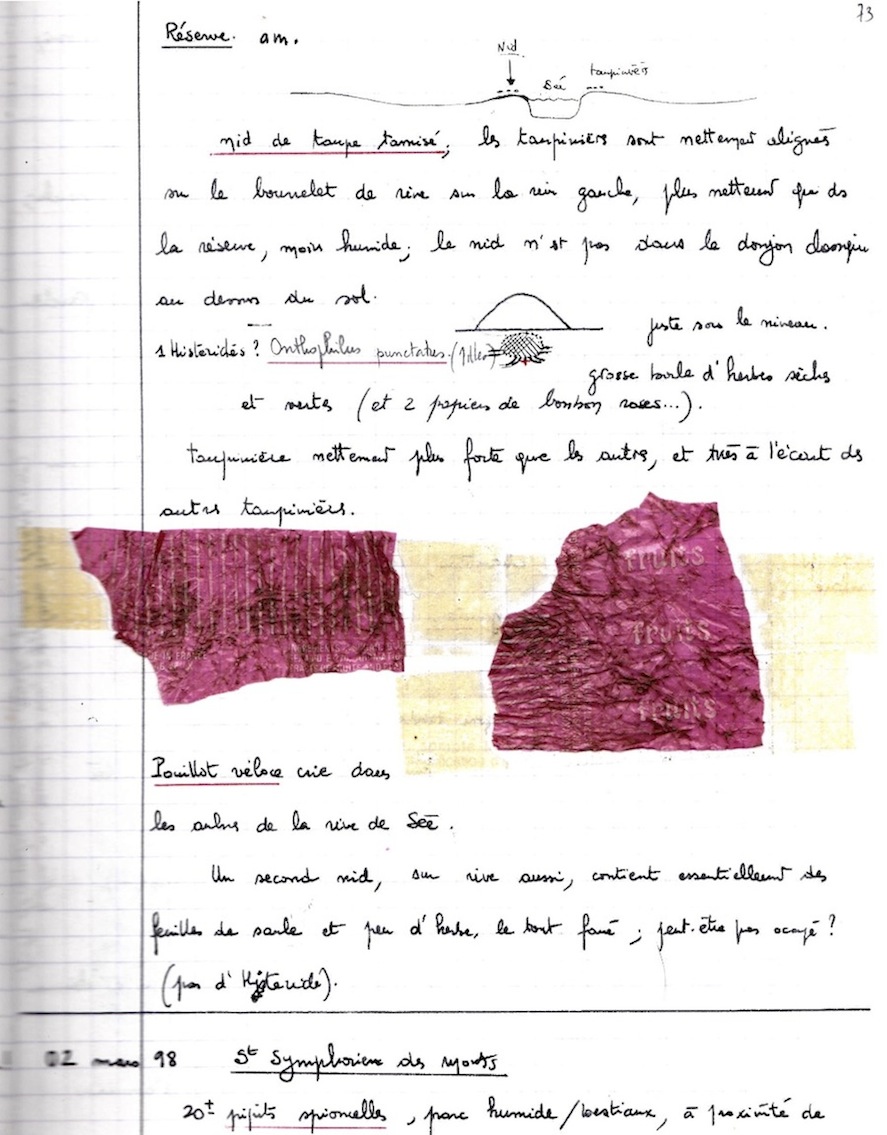 73
Réserve. am.
Nid
Sée
taupinières
nid de taupe tamisé; les taupinières sont nettement alignés
sur le bourrelet de rive sur la rive gauche, plus nettement que ds
la réserve, moins humide; le nid n'est pas dans le donjon
au dessus du sol.
juste sous le niveau.
1 Histéridés ? Onthophilus punctatus.
grosse boule d'herbes sèches
et vertes (et 2 papiers de bonbon roses...).
taupinière nettement plus forte que les autres, et très à l'écart des
autres taupinières.
fruits
fruits
fruits
FRANCE
Pouillot véloce crie dans
les arbres de la rive de Sée.
Un second nid, sur rive aussi, contient essentiellement des
feuilles de saule et peu d'herbe, le tout fané ; peut-être pas occupé ?
(pas d'Histéridé).
02 mars 98 St Symphorien des Monts
20± pipits spioncelles, parc humide/bestiaux, à proximité de